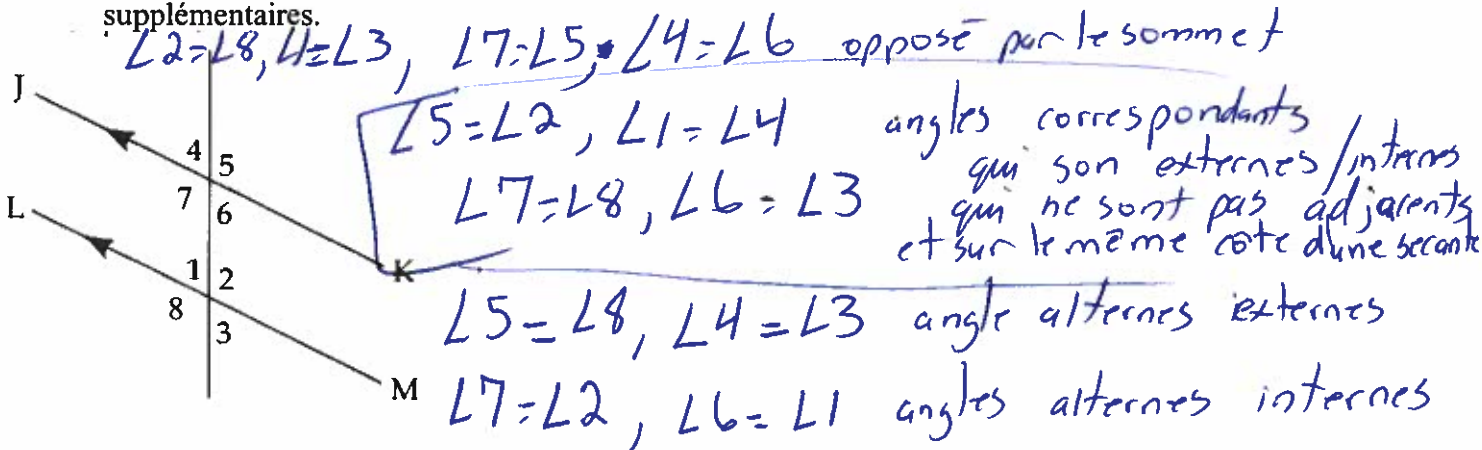 supplémentaires.
∠2=∠8, ∠1=∠3, ∠7=∠5, ∠4=∠6 opposé par le sommet
J
∠5=∠2, ∠1=∠4 angles correspondants
4 5
qui son externes/internes
7 6
∠7=∠8, ∠6=∠3 qui ne sont pas adjacents
L
et sur le même côte d'une secante
K
1 2
8
3
∠5=∠8, ∠4=∠3 angle alternes externes
M
∠7=∠2, ∠6=∠1 angles alternes internes